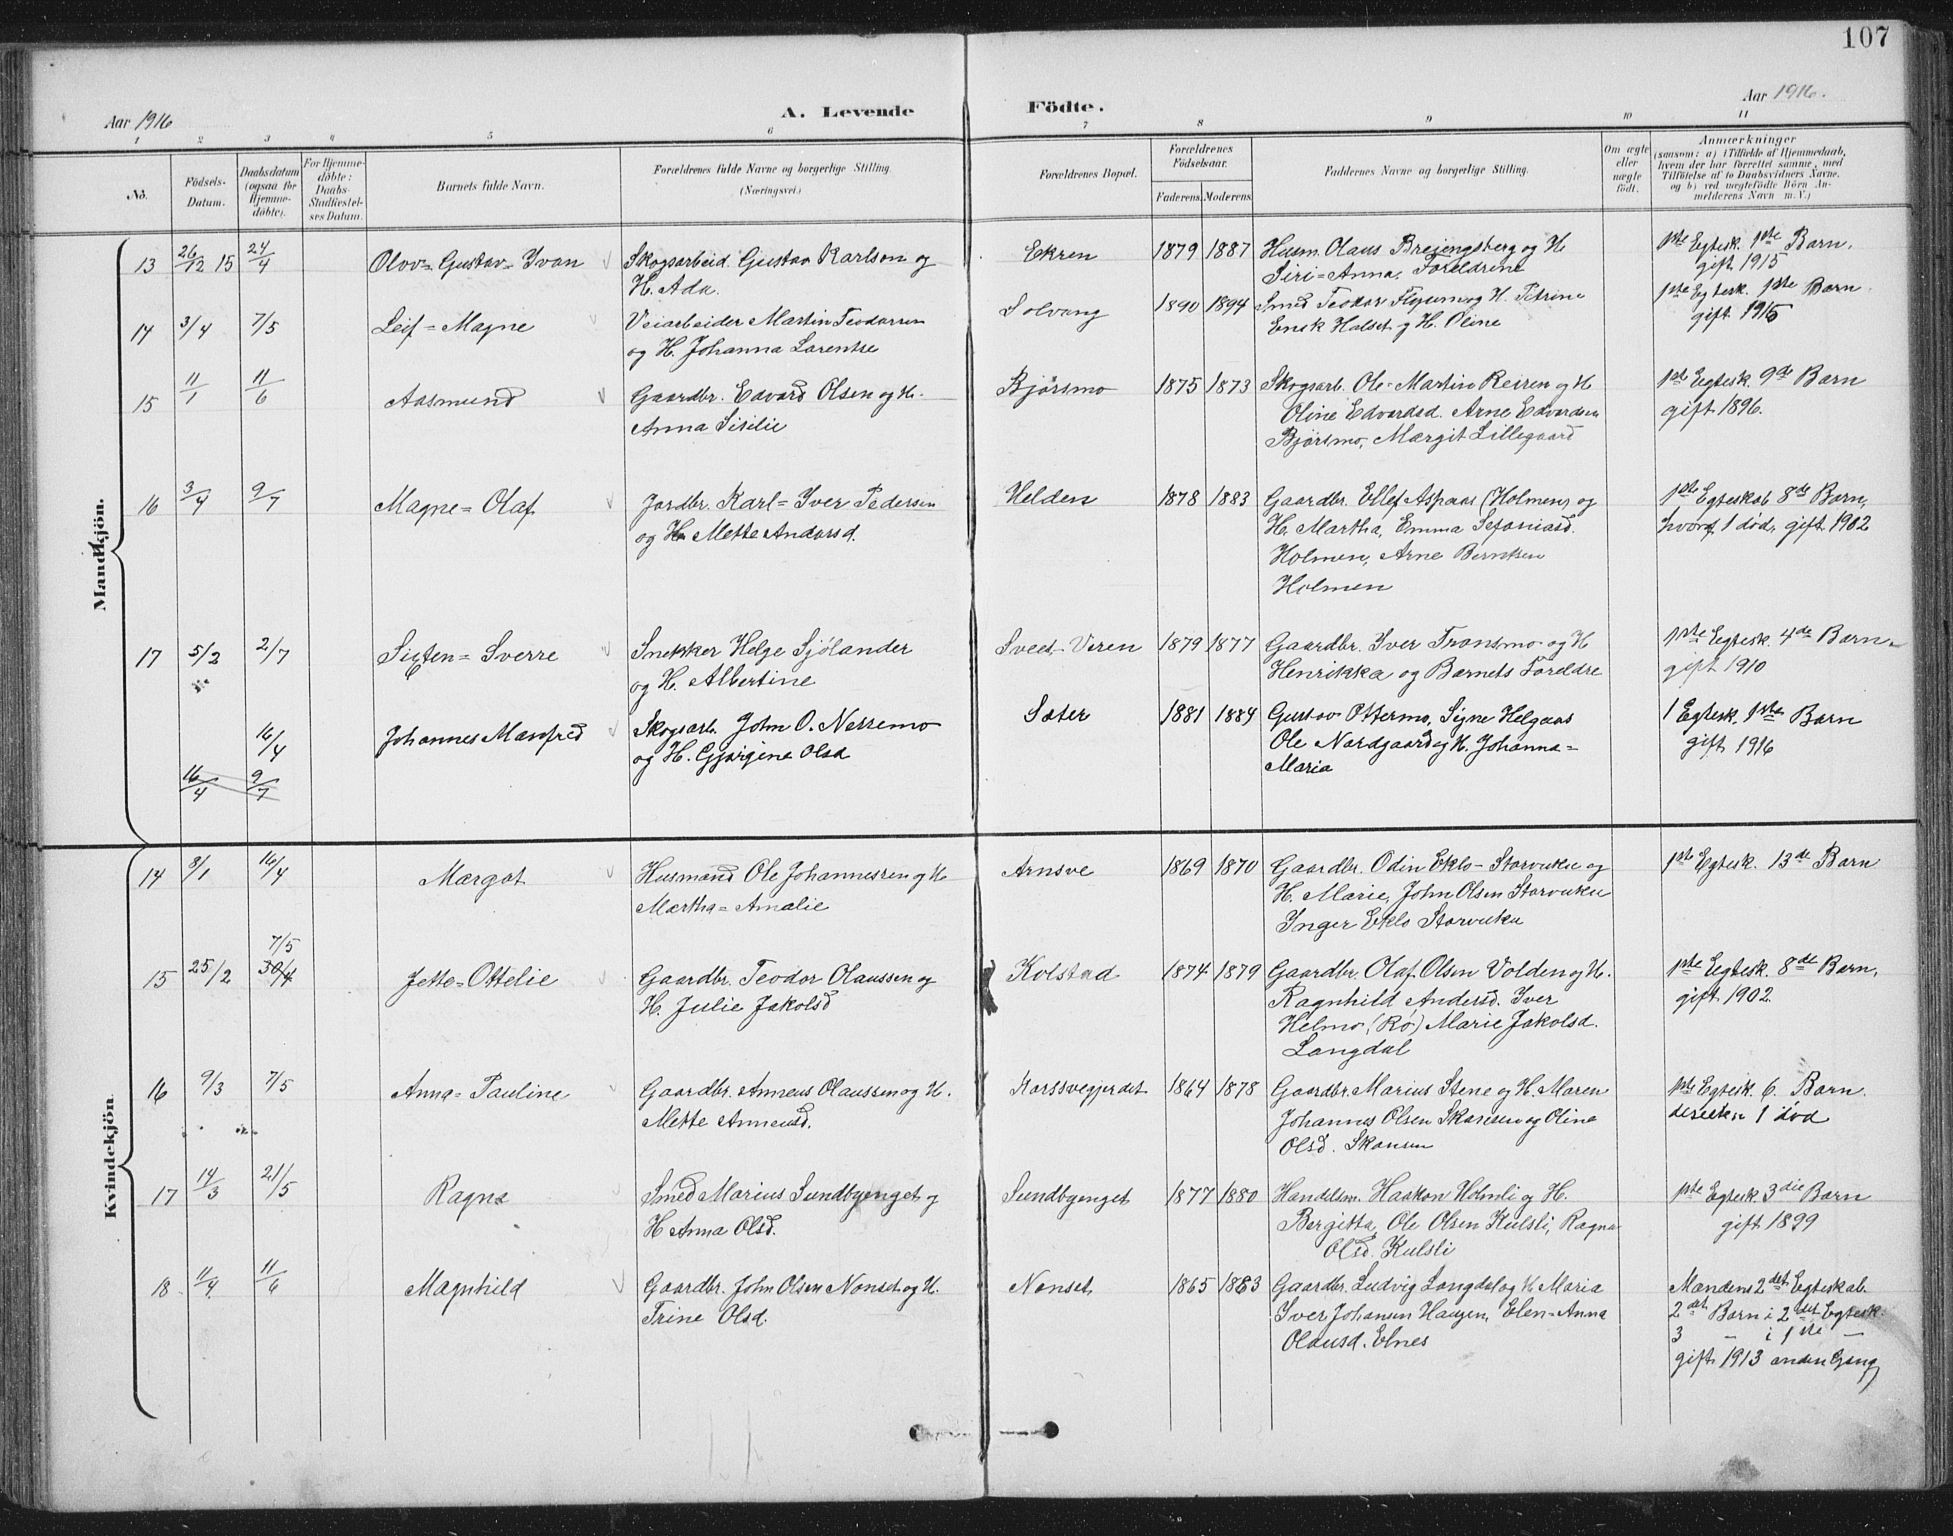 107
Aar 1916
A. Levende
Födte.
Aar 1916.
1 2 3 4 5 6 7 8 9 10 11
No.
Födsels-
Datum.
Daabsdatum
(ogsaa for
Hjemme-
döbte).
For Hjemme-
döbte:
Daabs-
Stadfæstel-
ses Datum.
Barnets fulde Navn.
Forældrenes fulde Navne og borgerlige Stilling.
(Næringsvei.)
Forældrenes Bopæl.
Forældrenes
Födselsaar.
Faderens. Moderens.
Faddernes Navne og borgerlige Stilling.
Om ægte
eller
uægte
födt.
Anmærkninger
(saasom: a) i Tilfælde af Hjemmedaab,
hvem der har forrettet samme, med
Tilföielse af to Daabsvidners Navne,
og b) ved uægtefödte Börn An-
melderens Navn m. V.)
Mandkjön.
13 26/12 15 24/4 Olov=Gustav=Yvan
Skogsarbeid. Gustav Karlson og
H. Ada.
Ekren 1879 1887
Husm. Olaus Brejengsberg og H
Siri=Anna, Foreldrine
1ste Egtesk. 1ste Barn.
gift 1915
14 3/4 7/5 Leif=Magne
Veiarbeider Martin Teodorsen
og H. Johanna Lorentse
Solvang 1890 1894
Smed Teodor og H. Petrine
Halset og H. Oline
1ste Egtesk. 1ste Barn.
gift 1915
15 11/1 11/6 Aasmund
Gaardbr. Edvard Olsen og H.
Anna Sisilie
Bjørsmo 1875 1873
Skogsarb. Ole-Martin Reiren og H
Oline Edvardsd. Arne Edvardsen
Bjørsmo, Margit Lillegaard
1ste Egtesk. 9de Barn
gift 1896.
16 3/4 9/7 Magne=Olaf
Jordbr. Karl=Yver Pedersen
og H. Mette Andersd.
Helden 1878 1883
Gaardbr. Ellef Aspaas (Holmen) og
H. Martha, Emma Sefaniasd.
Holmen, Arne Berntsen
Holmen
1ste Egteskab 8de Barn,
hvoraf 1 død, gift 1902
17 5/2 2/7 Sixten=Sverre
Snekker Helge Sjölander
og H. Albertine
Sved-Veren 1879 1877
Gaardbr. Yver Tronsmo og H
Henrikka og Barnets Foreldre
1ste Egtesk. 4de Barn
gift 1910
16/4 Johannes Manfred
Skogsarb. John O. Nessemo
og H. Gjørgine Olsd
Sæter 1881 1884
Gustav Ottermo, Signe Helgaas
Ole Nordgaard og H. Johanna=
Maria
1 Egtesk. 1ste Barn
gift 1916
16/4 9/7
Kvindekjön.
14 3/1 16/4 Margot
Husmand Ole Johannessen og H
Martha=Amalie
Arnsve 1869 1870
Gaardbr. Odin Eklo-Storvuku og
H. Marie, John Olsen Storvuku
Inger Eklo Storvuku
1ste Egtesk. 13de Barn
7/5
15 25/2 30/4 Jette=Ottelie
Gaardbr. Teodor Olaussen og
H. Julie Jakobsd
Kolstad 1874 1879
Gaardbr. Olaf Olsen Volden og H.
Ragnhild Andersd. Yver
Helmo, (Rø) Marie Jakobsd.
Langdal
1ste Egtesk. 8de Barn,
gift 1902.
16 9/3 7/5 Anna=Pauline
Gaardbr. Anneus Olaussen og H.
Mette Anneusd.
Korssvegjerdet 1864 1878
Gaardbr. Marius Stene og H. Maren
Johannes Olsen Skansen og Oline
Olsd. Skansen
1ste Egtesk. 6. Barn.
1 død
17 14/3 21/5 Ragna
Smed Marius Sundbyenget og
H Anna Olsd.
Sundbyenget 1877 1880
Handelsm. Haakon Holmli og H.
Bergitta, Ole Olsen Kulsli, Ragna
Olsd. Kulsli
1ste Egtesk. 3die Barn
gift 1899
18 11/4 11/6 Magnhild
Gaardbr. John Olsen Nonset og H.
Trine Olsd.
Nonset 1865 1883
Gaardbr. Ludvig Langdal og H Maria
Iver Johansen Haugen, Elen=Anna
Olausd. Elnes
Mandens 2det Egteskab
2det Barn i 2det Egtesk.
3 — i 1ste —
gift 1913 anden Gang